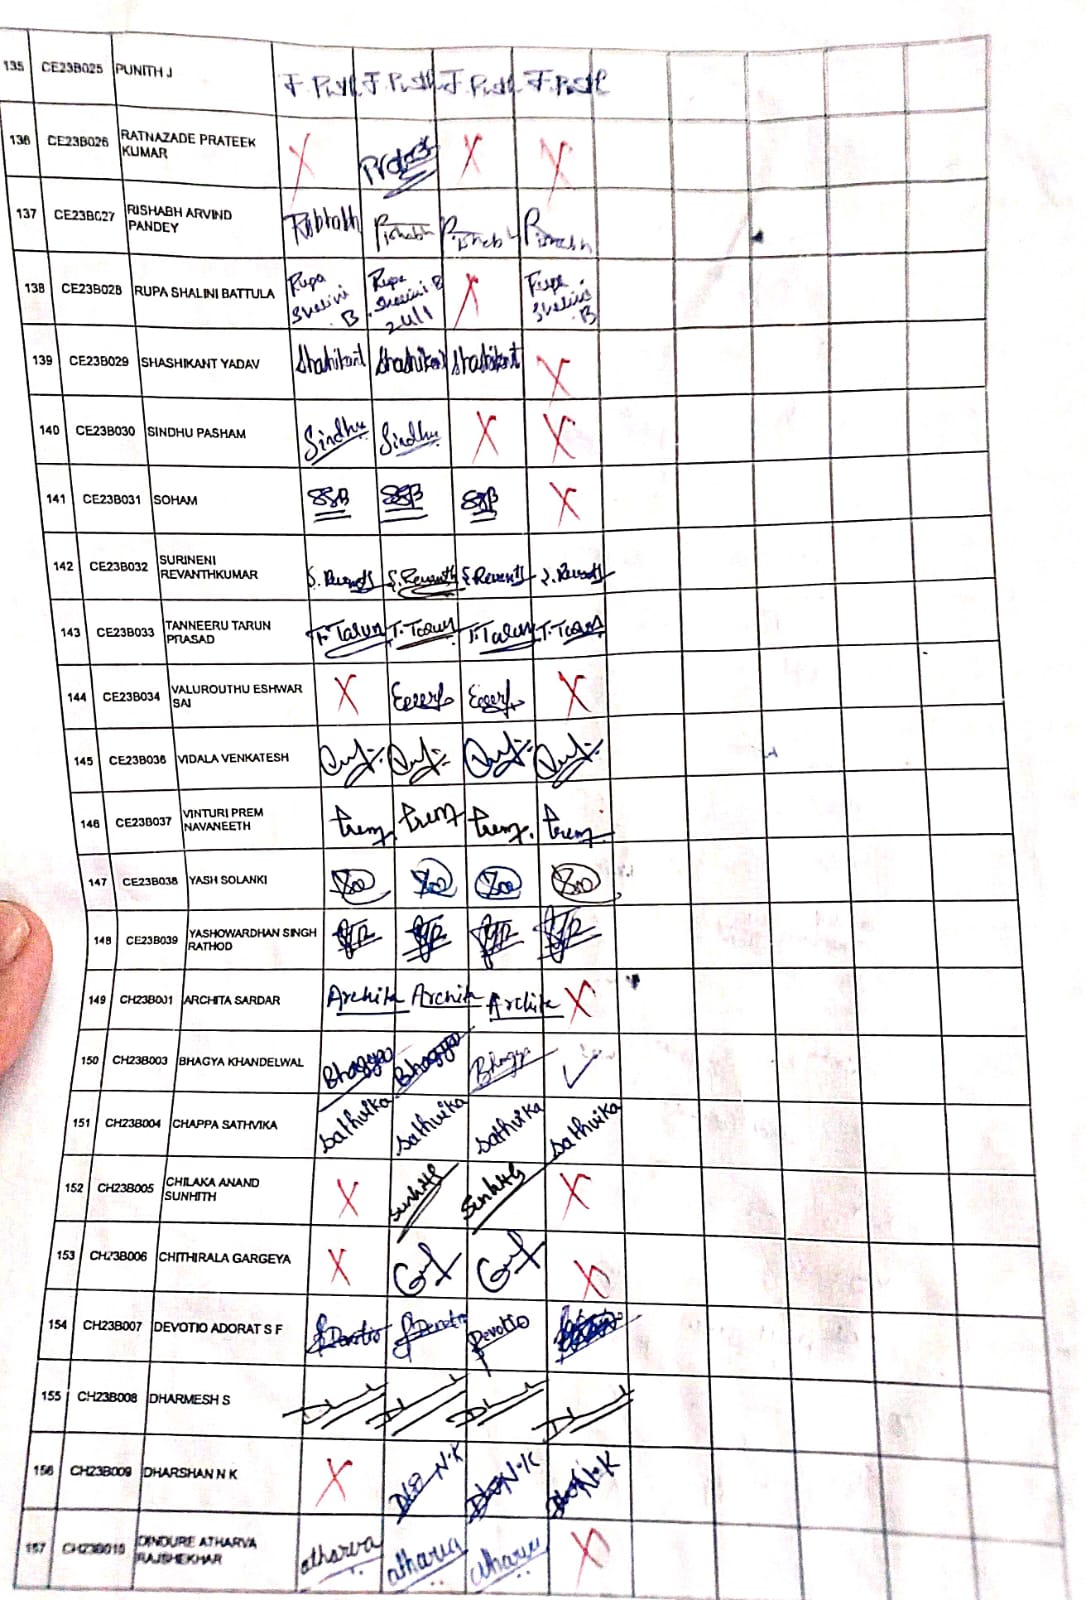 135 CE23B025 PUNITH J
136 CE23B026 RATNAZADE PRATEEK KUMAR X X X
137 CE23B027 RISHABH ARVIND PANDEY Rishabh Rishabh Rishabh Rishabh
138 CE23B028 RUPA SHALINI BATTULA Rupa Shalini .B Rupa Shalini B 24/1 X Rupa Shalini .B
139 CE23B029 SHASHIKANT YADAV Shahikant Shashikant Shashikant X
140 CE23B030 SINDHU PASHAM Sindhu Sindhu X X
141 CE23B031 SOHAM SSB SSB SSB X
142 CE23B032 SURINENI REVANTHKUMAR S. Revanth S. Revanth
143 CE23B033 TANNEERU TARUN PRASAD T. Tarun T. Tarun T. Tarun T. Tarun
144 CE23B034 VALUROUTHU ESHWAR SAI X X
145 CE23B036 VIDALA VENKATESH
146 CE23B037 VINTURI PREM NAVANEETH Prem Prem Prem. Prem
147 CE23B038 YASH SOLANKI
148 CE23B039 YASHOWARDHAN SINGH RATHOD
149 CH23B001 ARCHITA SARDAR Archita Archita Archita X
150 CH23B003 BHAGYA KHANDELWAL Bhagya Bhagya Bhagya ✓
151 CH23B004 CHAPPA SATHVIKA Sathvika Sathvika Sathvika Sathvika
152 CH23B005 CHILAKA ANAND SUNHITH X X
153 CH23B006 CHITHIRALA GARGEYA X X
154 CH23B007 DEVOTIO ADORAT S F Devotio Devotio Devotio
155 CH23B008 DHARMESH S
156 CH23B009 DHARSHAN N K X N.K N.K N.K
157 CH23B010 DINDURE ATHARVA RAJSHEKHAR atharva atharva atharva X